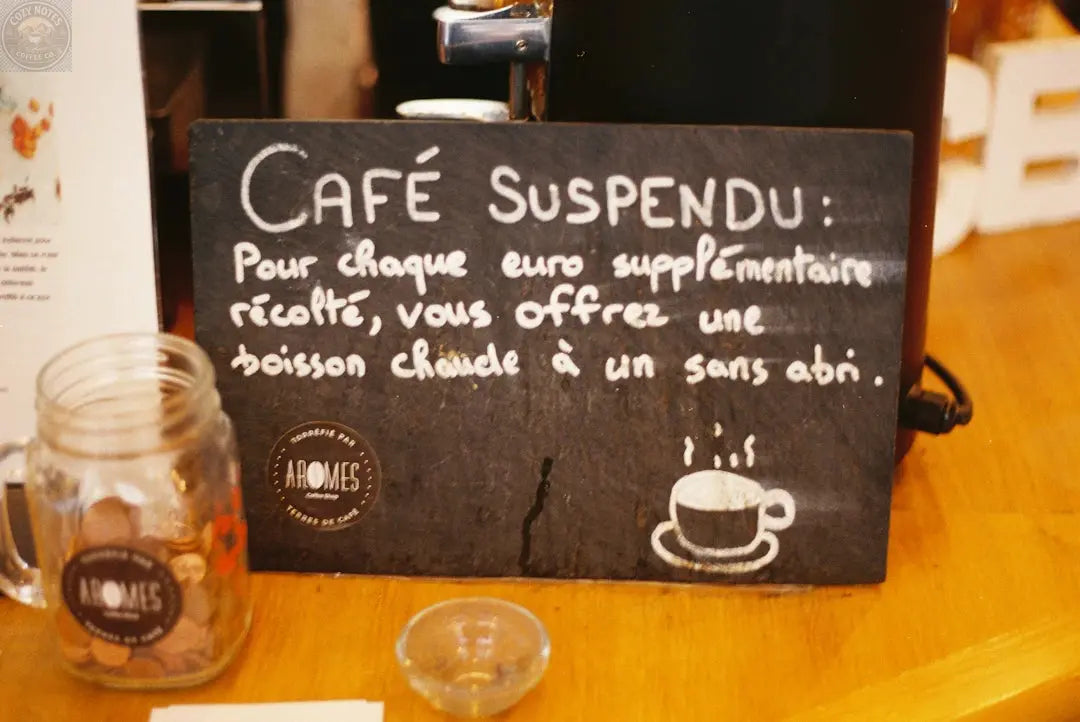 COZY NOTES
COFFEE CO.
CAFÉ SUSPENDU :
Pour chaque euro supplémentaire
récolté, vous offrez une
boisson chaude à un sans abri.
TORRÉFIÉ PAR
AROMES
Coffee Shop
TERRES DE CAFÉ
AROMES
TERRES DE CAFÉ